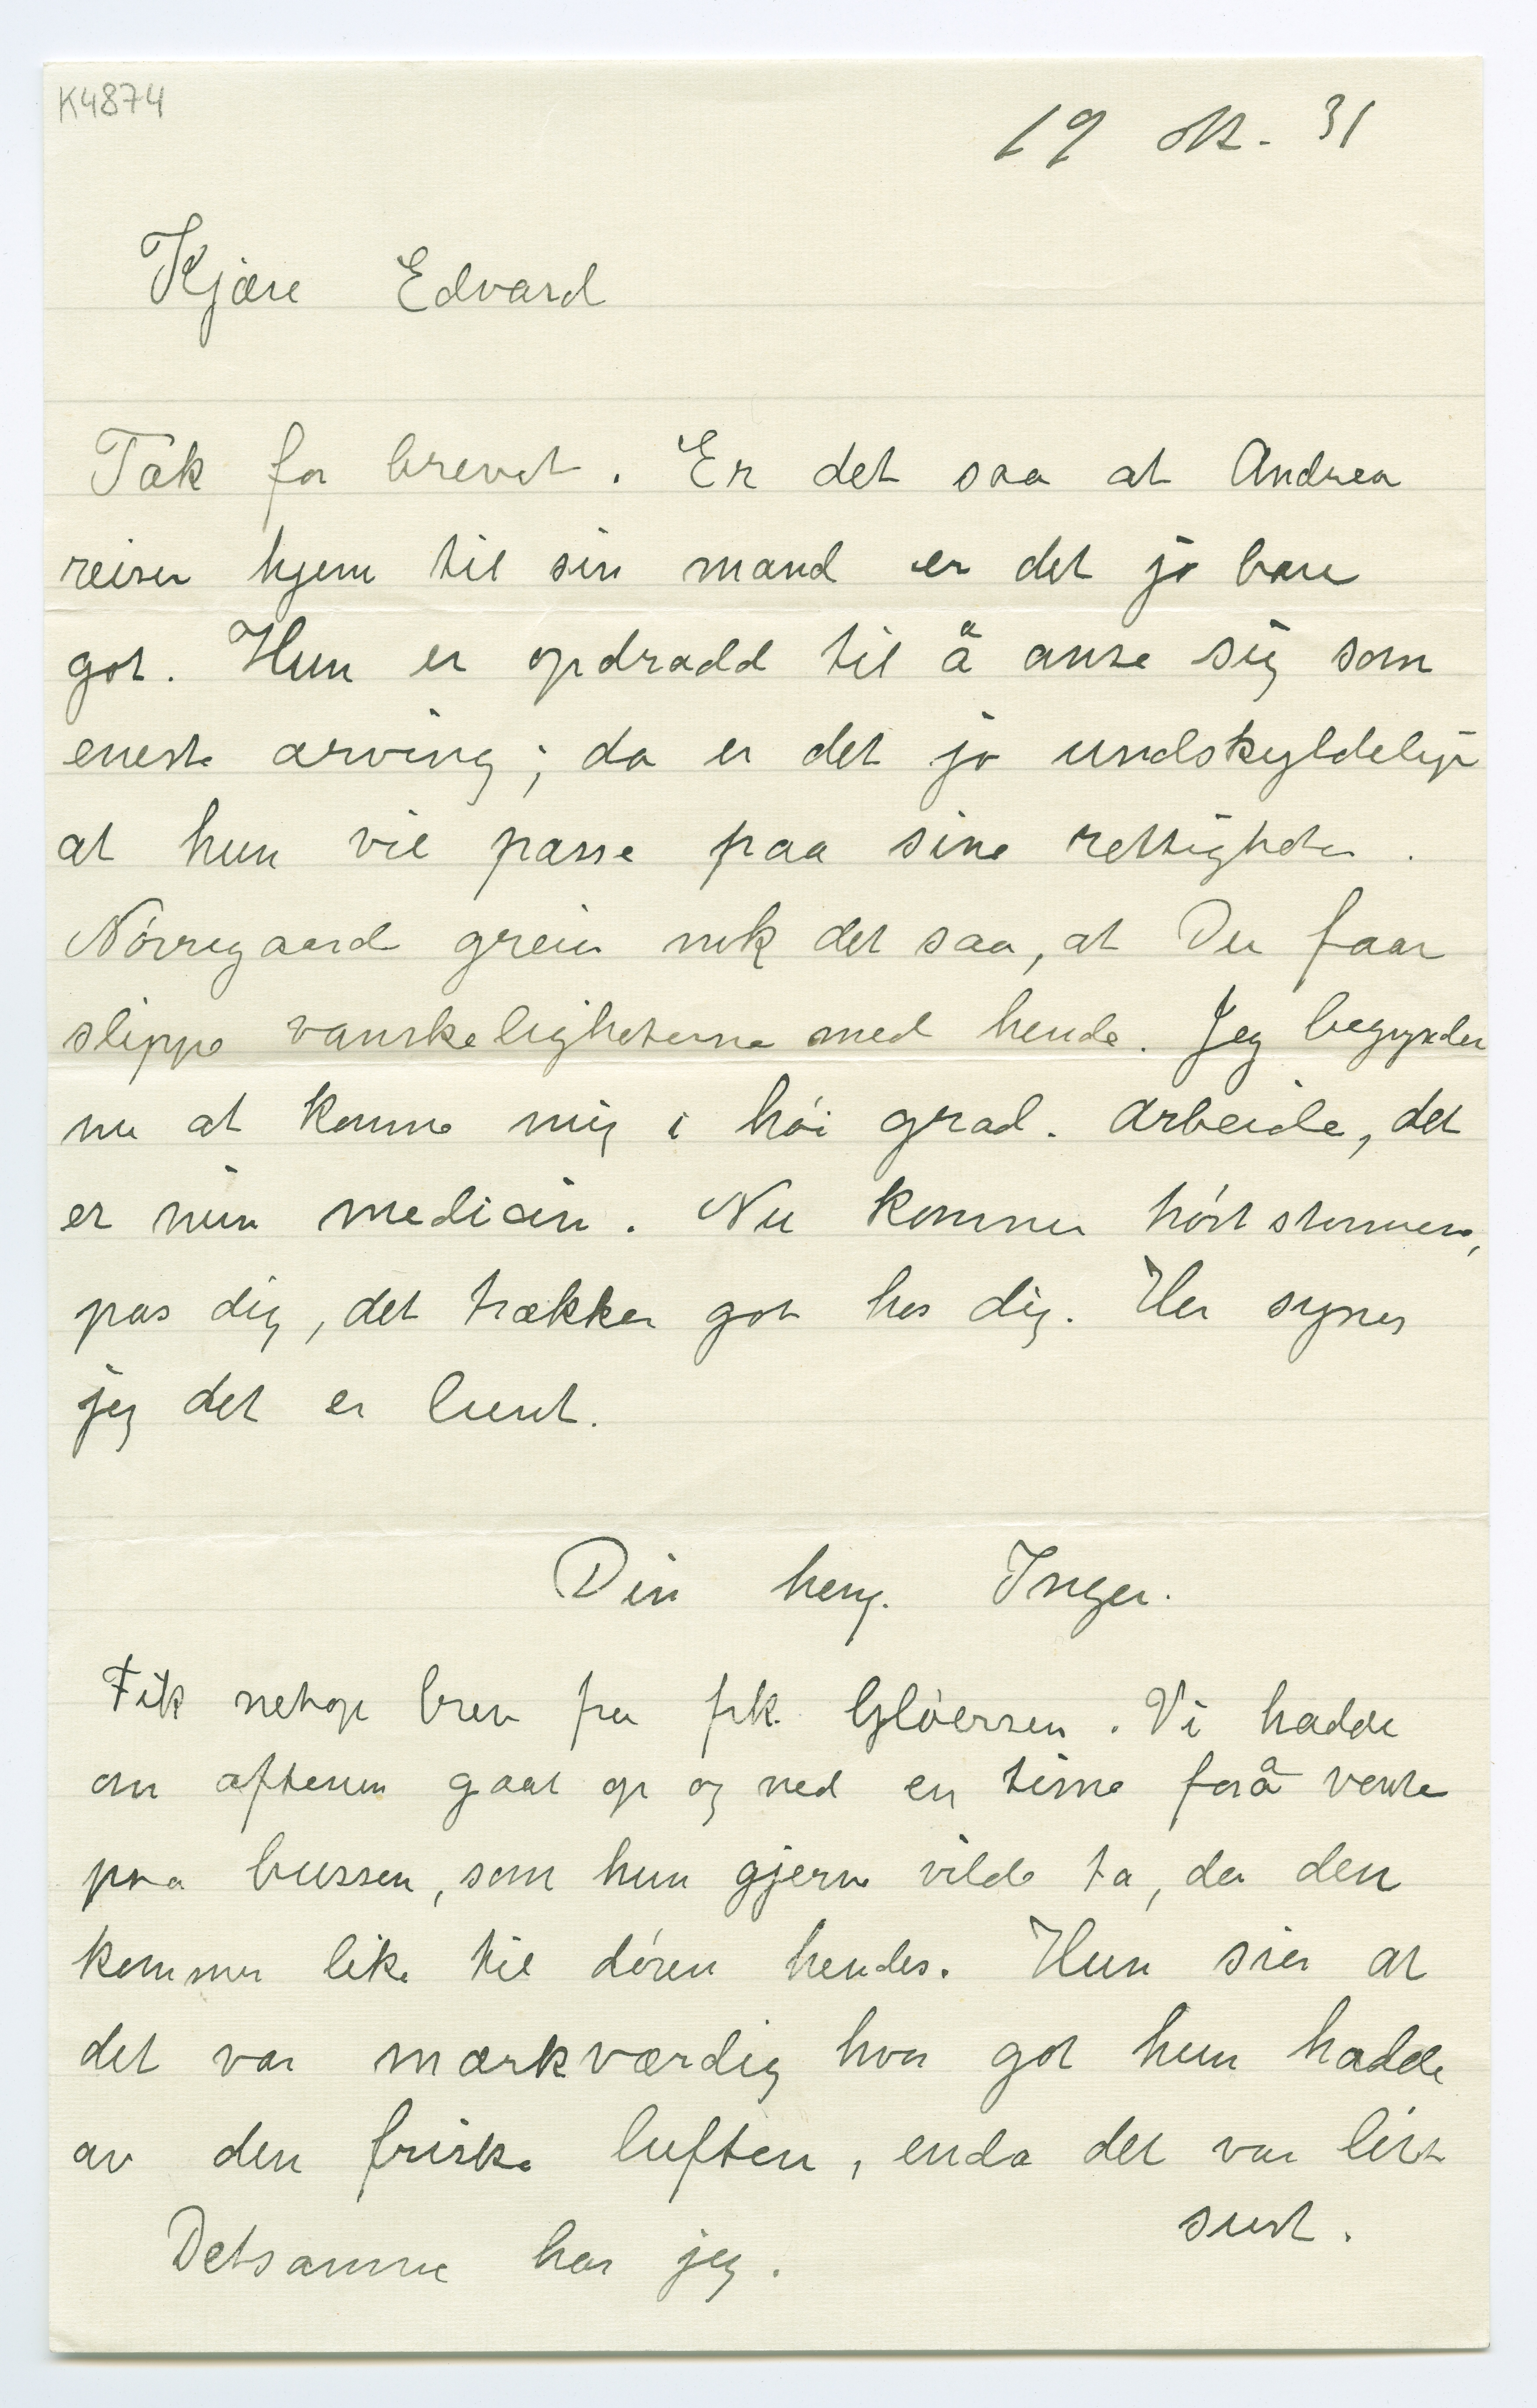 K4874
19 ok. 31
Kjære Edvard
Tak for brevet. Er det saa at Andrea
reiser hjem til sin mand er det jo bare
got. Hun er opdradd til å anse sig som
eneste arving; da er det jo undskyldelig
at hun vil passe paa sine rettigheter.
Nórregaard greier nok det saa, at Du faar
slippe vanskeligheterne med hende. Jeg begynder
nu at komme mig i hói grad. Arbeide, det
er min medicin. Nu kommer hóststormene,
pas dig, det trækker got hos dig. Her synes
jeg det er lunt.
Din heng. Inger.
Fik netop brev fra frk. Glóersen. Vi hadde
om aftenen gaat op og ned en time for å vente
paa bussen, som hun gjerne vilde ta, da den
kommer like til dóren hendes. Hun sier at
det var mærkværdig hvor got hun hadde
av den friske luften, enda det var litt
surt.
Detsamme har jeg.